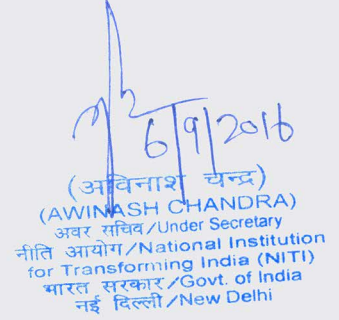 6/9/2016
(अविनाश चन्द्र)
(AWINASH CHANDRA)
अवर सचिव/Under Secretary
नीति आयोग/National Institution
for Transforming India (NITI)
भारत सरकार/Govt. of India
नई दिल्ली/New Delhi